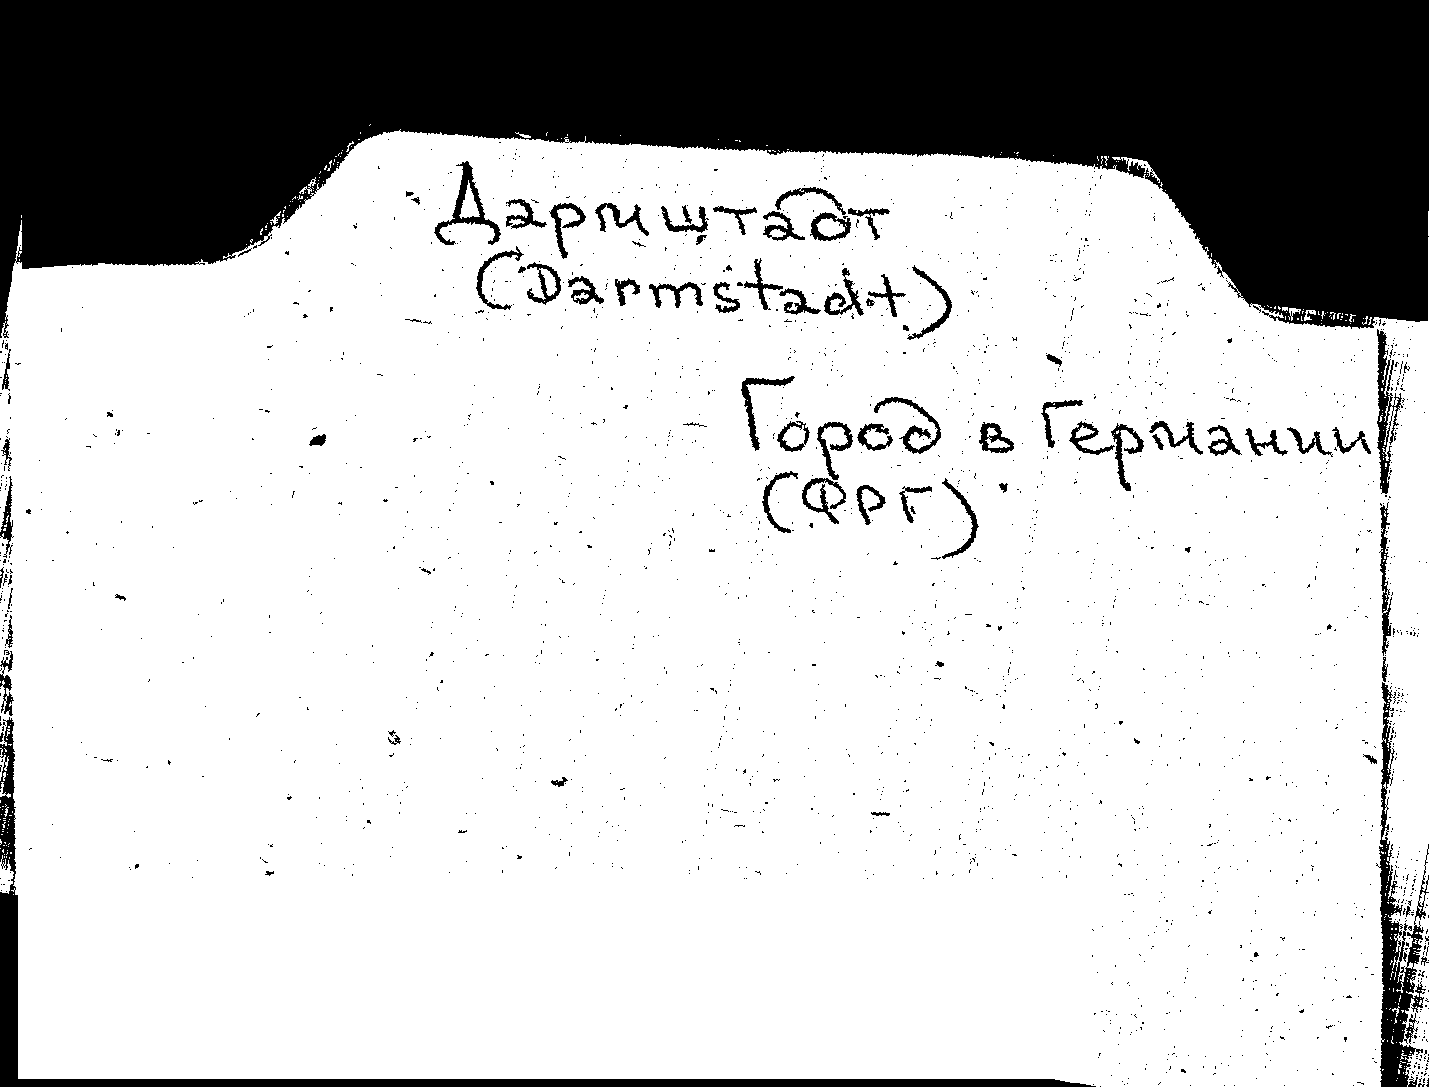 Дармштадт
(Darmstadt)
Город в Германии
(ФРГ)